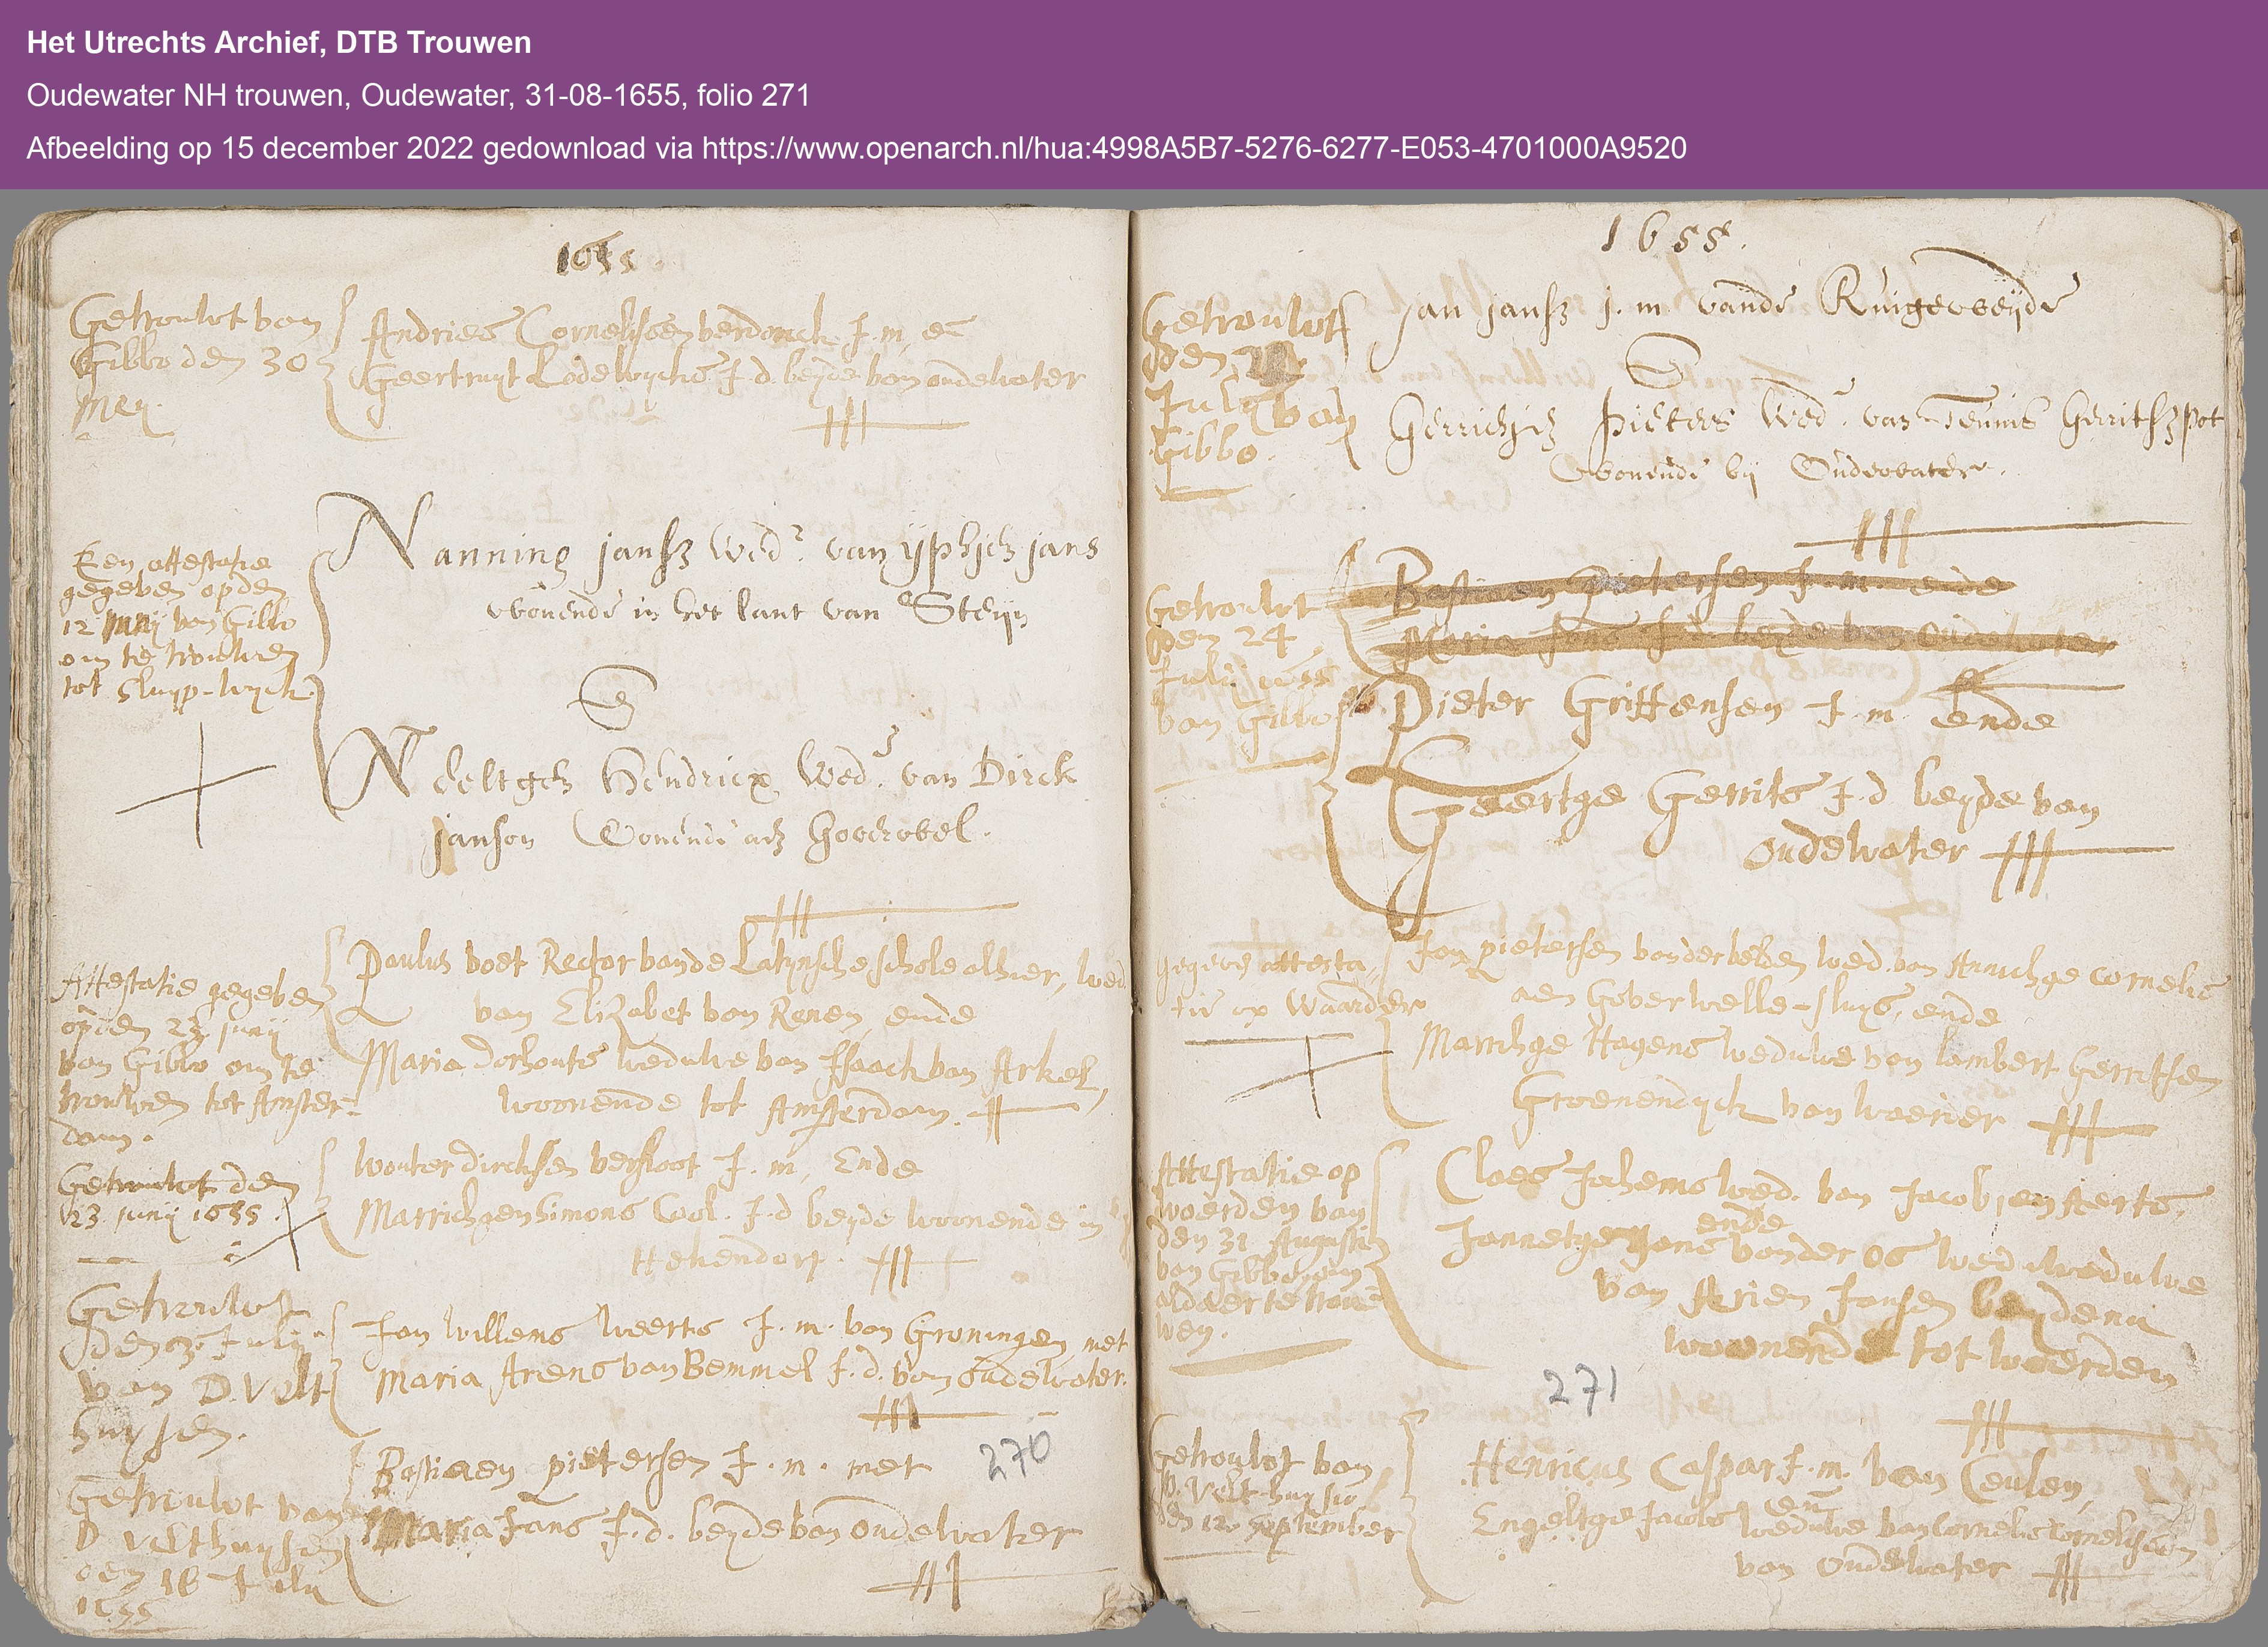 Het Utrechts Archief, DTB Trouwen
Oudewater NH trouwen, Oudewater, 31-08-1655, folio 271
Afbeelding op 15 december 2022 gedownload via https://www.openarch.nl/hua:4998A5B7-5276-6277-E053-4701000A9520
1655
Getrouwt van
Gibbo den 30
Mey.
Andries Cornelissen verdonck J. m. en
Geertruyt Lodewychs J d. beyde van oudewater
Een attestatie
gegeven op den
12 Junij van Gibbo
om te trouwen
tot Sluyp-wyck
Nanning jansz wedr. van ijphjen jans
wonende in het lant van Steijn
E
Neeltgen Hendricx Wed. van Dirck
janson Wonende Goeverwel.
Attestatie gegeven
op den 23 junij
van Gibbo om te
trouwen tot Amster-
dam.
Paulus voet Rector vande Latynsche schole alhier, wed.
van Elizabet van Renen, ende
Maria dorhouts weduwe van Isaack van Arkel,
woonende tot Amsterdam.
Getrouwt den
23 junij 1655.
Wouter dircksen versloot J. m, Ende
Marrichgen Simons Cool. J. d beyde woonende in
Hekendorp.
Getrouwt
den 3 July
van D. Velt
huysen.
Jan Willems weerts J. m. van Groningen met
Maria Arens van Bemmel J. d. van oudewater.
Getrouwt van
D Velthuysen
den 18 July
1655
Bastiaen pietersen J. m. met
Maria Jans J. d. beyde van oudewater
270
1655.
Getrouwt
den
July van
Gibbo.
Jan jansz j. m. vande Ruigeweijde
E
Gerrichjen Pieters Wed. van Teunis Gerritsz pot
Wonende bij Oudewater.
Getrouwt
den 24
July 1655
van Gibbo
Bastiaen Pietersen J. m. ende
Maria Jans J d. beyde van Oudewater
Pieter Grittensen J. m. Ende
Geertge Gerrits J. d beyde van
oudewater
gegeven attesta
tie op Waarder
Jan pietersen vander veken wed. van Annichge Cornelis
aen Goverwelle-sluys, ende
Marrichge Hagens weduwe van lambert Gerritsen
Groenendyck van waerder
Attestatie op
woerden van
den 31 Augusti
van Gibbo om
aldaer te trou
wen.
Claes Jochems wed. van Jacobjen Aerts,
ende
Jannetge Jans vander Os wed weduwe
van Arien Jansen beyden
woonende tot woerden
271
Getrouwt van
D. Velt-huysen
den 12 September
Henricus Caspar J. m. van Ceulen,
en
Engeltge Jacobs weduwe van Cornelis Cornelissen
van oudewater